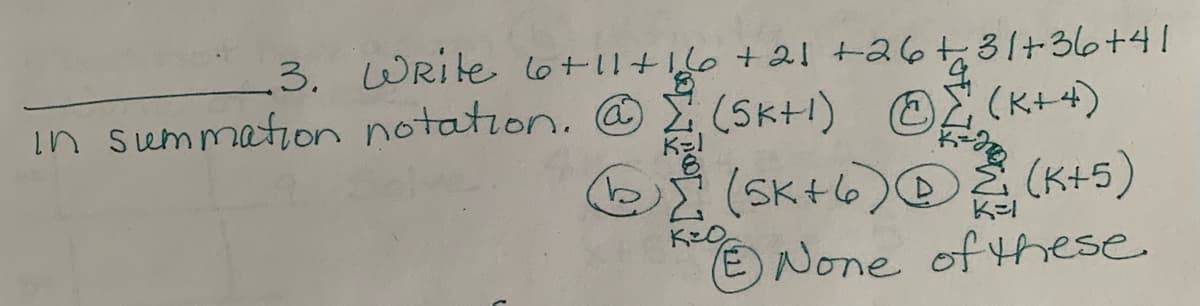 3. Write 6+11+16+21+26+31+36+41
in summation notation. ⓐ 8 Σ K=1 (5K+1) Ⓒ 9 Σ K=2 (K+4)
ⓑ 8 Σ K=0 (5K+6) Ⓓ 8 Σ K=1 (K+5)
Ⓔ None of these